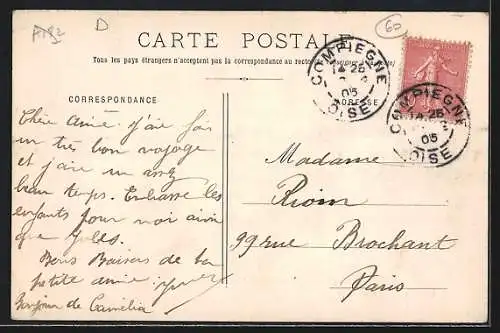 D
60
CARTE POSTALE
Tous les pays étrangers n'acceptent pas la correspondance au recto
CORRESPONDANCE
COMPIEGNE
14 25
05
OISE
ADRESSE
COMPIEGNE
14 25
05
OISE
Chère Amie. J'ai fais
un très bon voyage
et j'ai un assez
beau temps. Embrasse les
enfants pour moi ainsi
que Jules.
Bons Baisers de ta
petite amie
Bonjour de Camélia
Madame
Rioin
99 rue Brochant
Paris